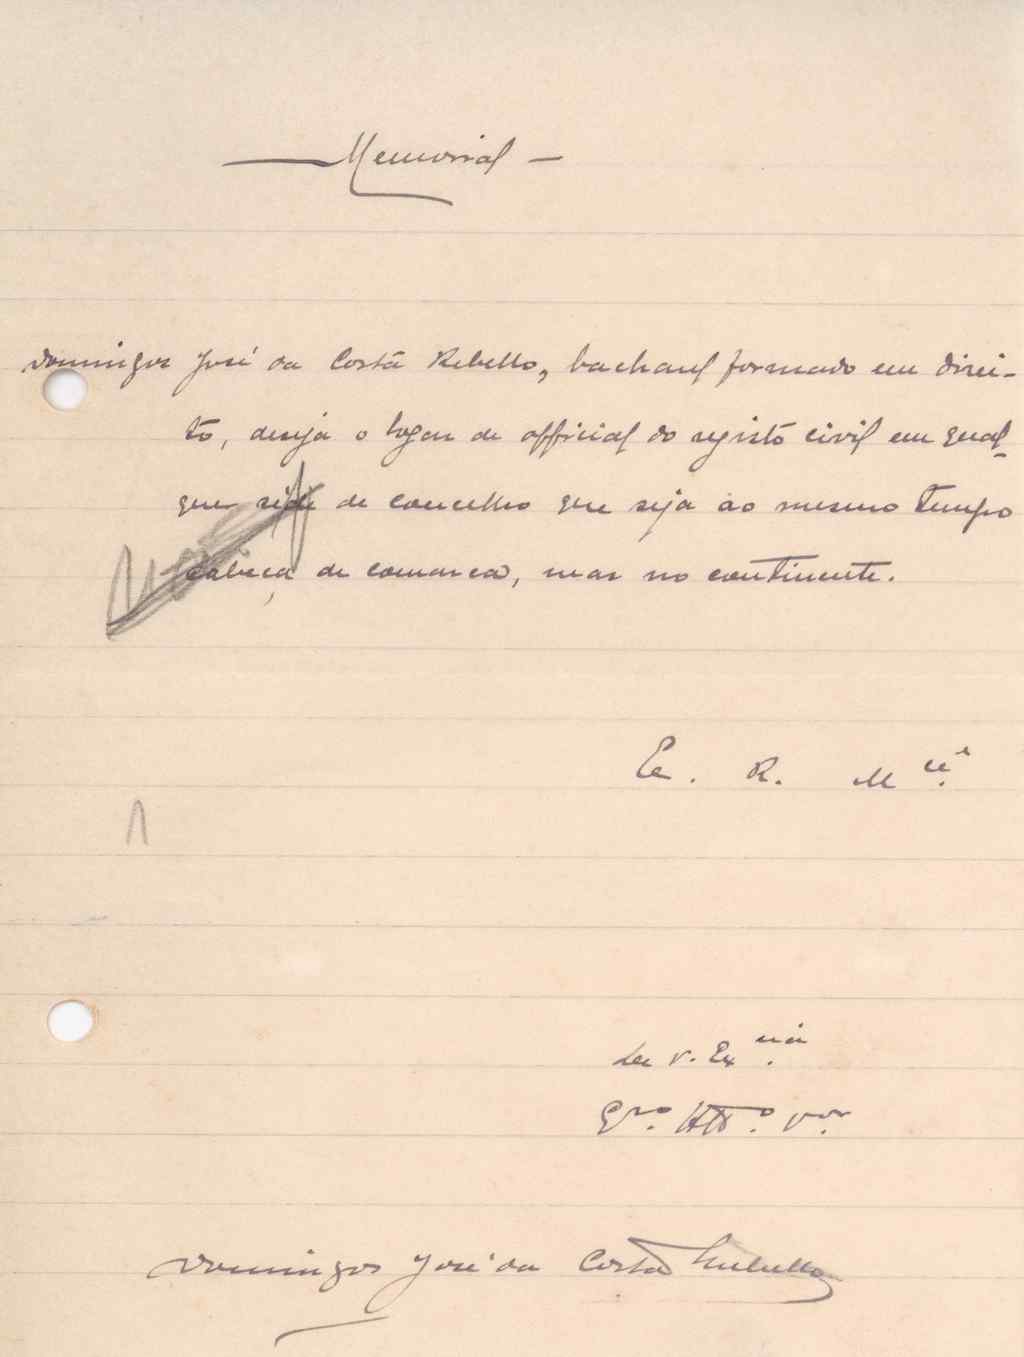 — Memorial —
Domingos José da Costa Rebello, bacharel formado em direi-
to, deseja o logar de official do registo civil em qual-
quer séde de concelho que seja ao mesmo tempo
cabeça de comarca, mas no continente.
E. R. M.cê
De V. Ex.ma
Att.o V.or
Domingos José da Costa Rebello